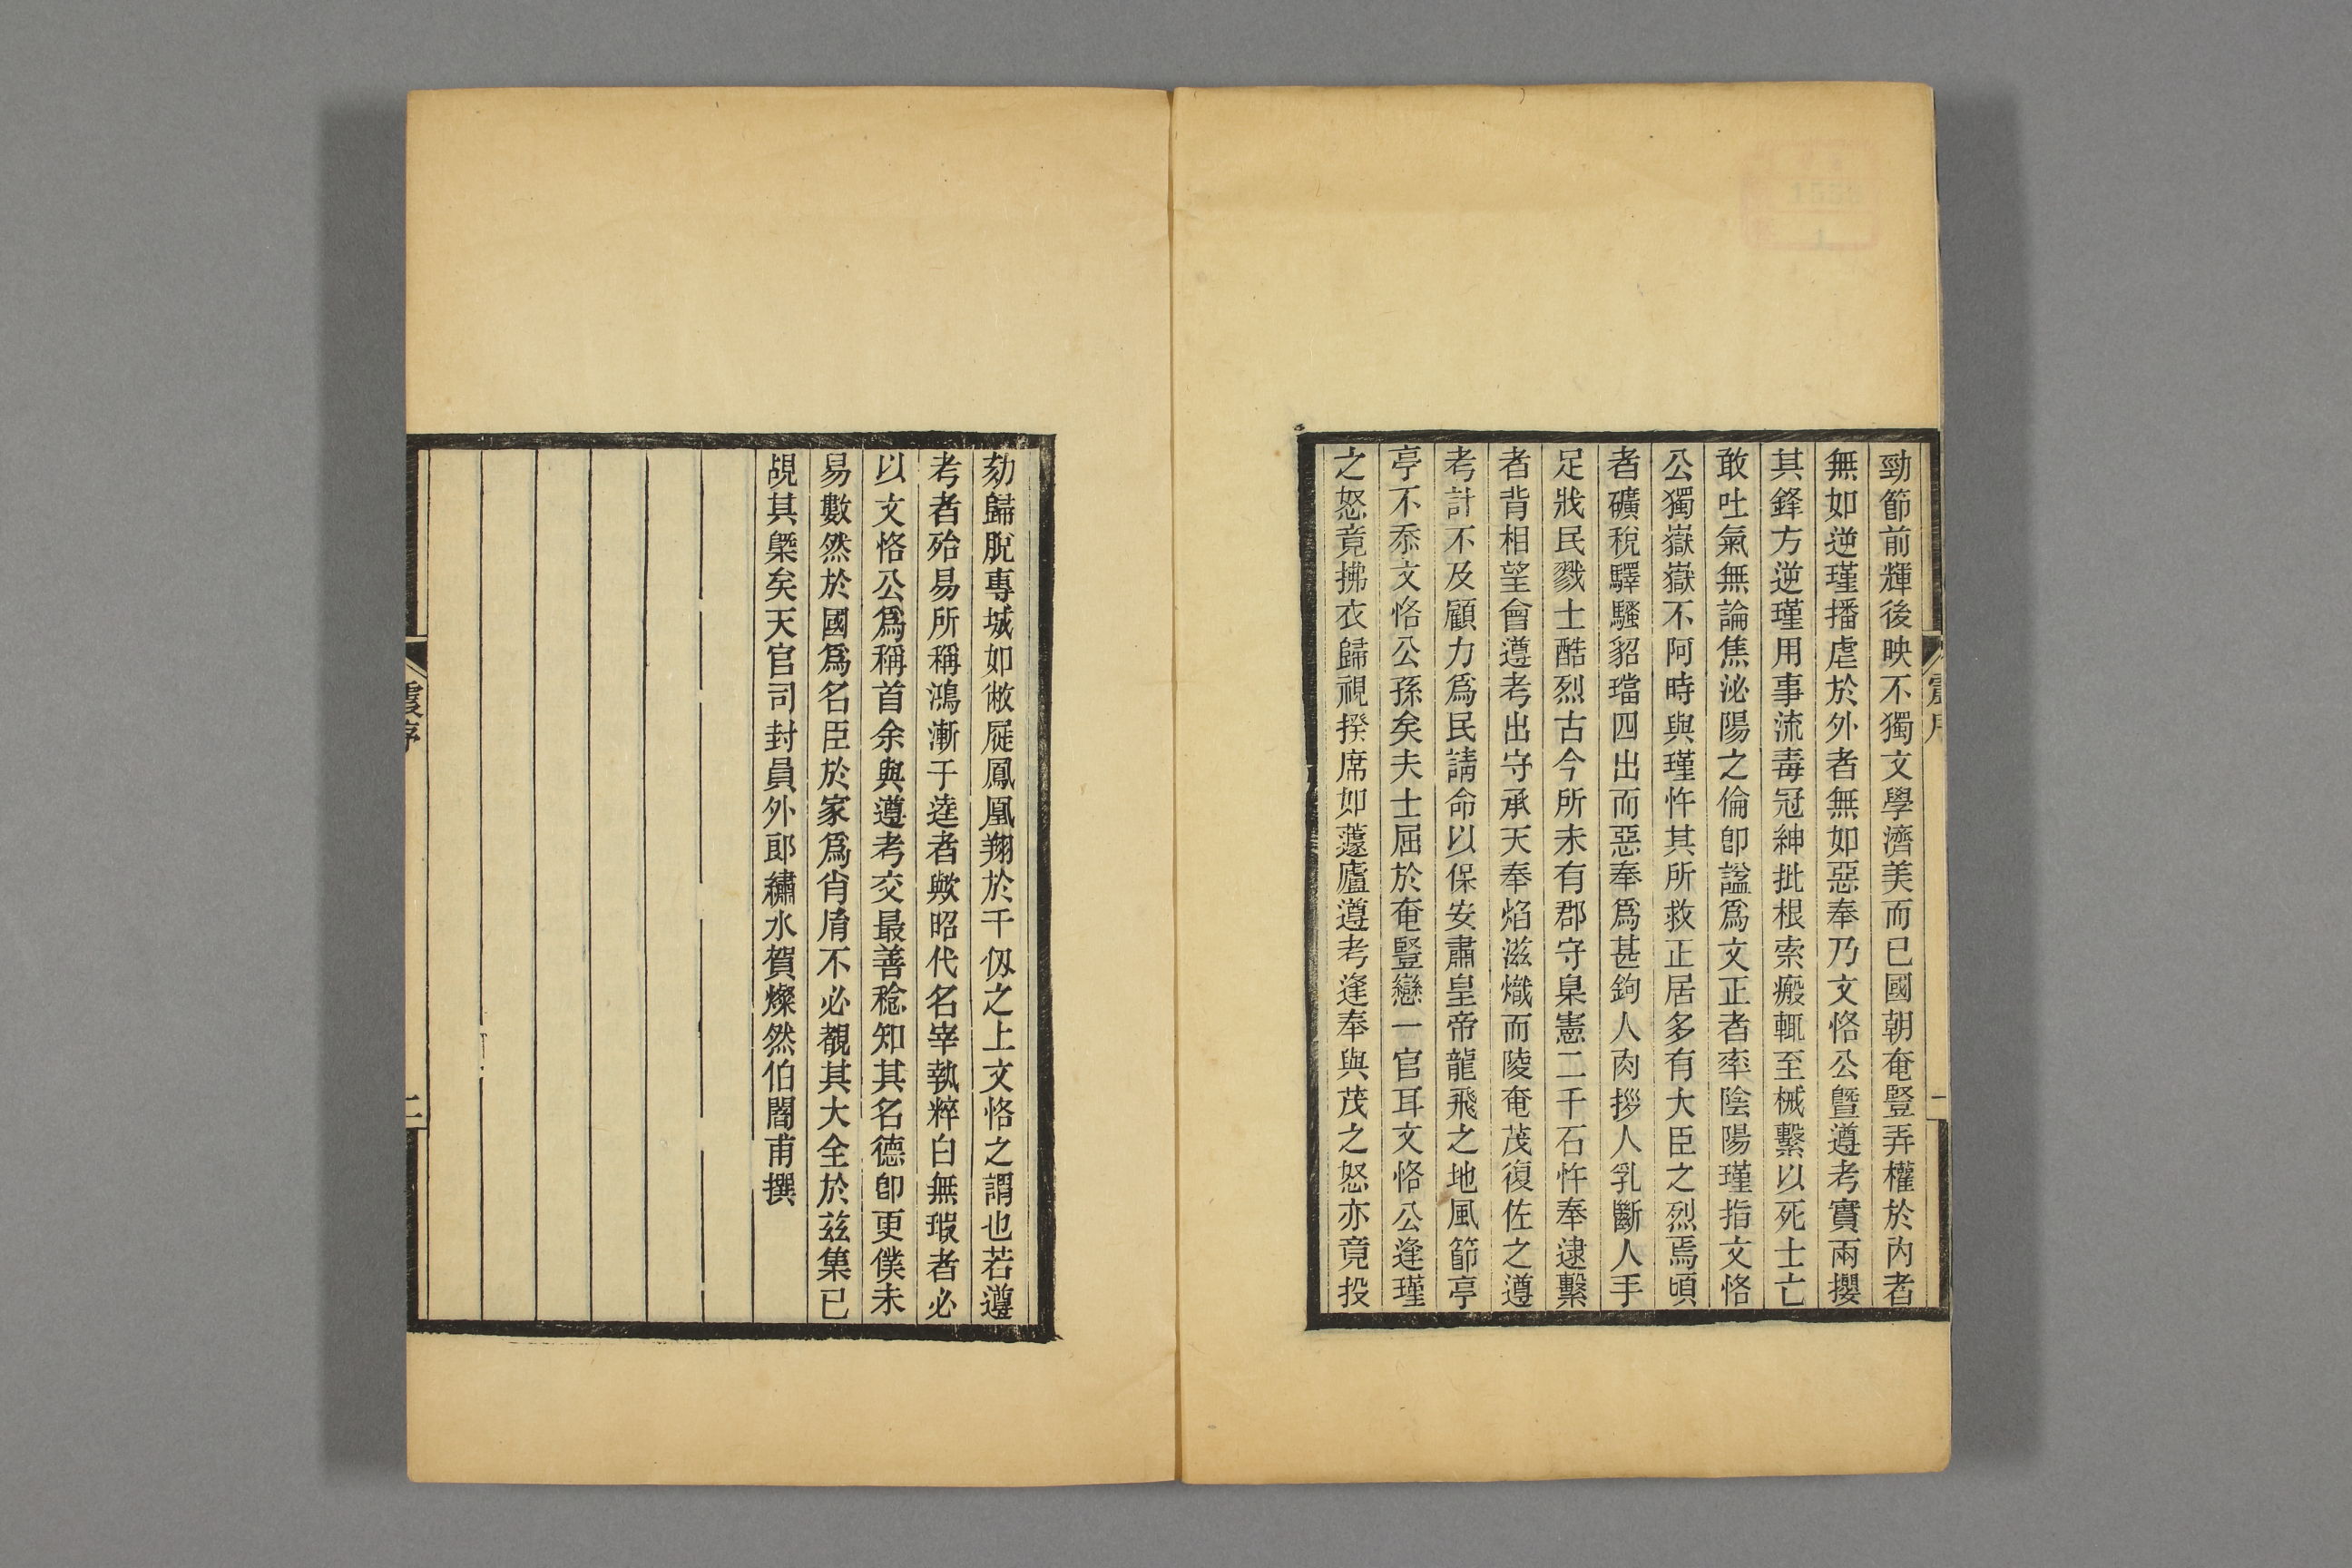 勁節前輝後映不獨文學濟美而已國朝奄豎弄權於內者
無如逆瑾播虐於外者無如惡奉乃文恪公曁遵考實兩攖
其鋒方逆瑾用事流毒冠紳批根索瘢輒至械繫以死士亡
敢吐氣無論焦泌陽之倫卽謚爲文正者率陰陽瑾指文恪
公獨嶽嶽不阿時與瑾忤其所救正居多有大臣之烈焉頃
者礦稅驛騷貂璫四出而惡奉爲甚鉤人肉拶人乳斷人手
足戕民戮士酷烈古今所未有郡守臬憲二千石忤奉逮繫
者背相望會遵考出守承天奉焰滋熾而陵奄茂復佐之遵
考計不及顧力爲民請命以保安肅皇帝龍飛之地風節亭
亭不忝文恪公孫矣夫士屈於奄豎戀一官耳文恪公逢瑾
之怒竟拂衣歸視揆席如蘧廬遵考逢奉與茂之怒亦竟投
劾歸脫專城如敝屣鳳凰翔於千仭之上文恪之謂也若遵
考者殆易所稱鴻漸于逵者歟昭代名宰執粹白無瑕者必
以文恪公爲稱首余與遵考交最善稔知其名德卽更僕未
易數然於國爲名臣於家爲肖㣧不必覩其大全於茲集已
覘其槩矣天官司封員外郎繡水賀燦然伯闇甫撰
震序
一
震序
二